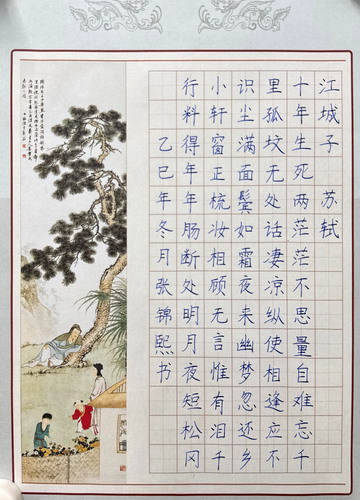 江城子 苏轼
十年生死两茫茫不思量自难忘千
里孤坟无处话凄凉纵使相逢应不
识尘满面鬓如霜夜来幽梦忽还乡
小轩窗正梳妆相顾无言惟有泪千
行料得年年肠断处明月夜短松冈
乙巳年冬月张锦熙书